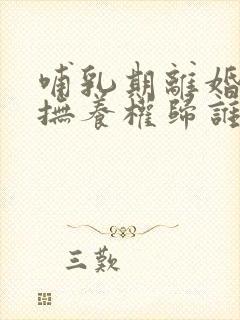 哺乳期離婚
撫養權歸誰
三歎